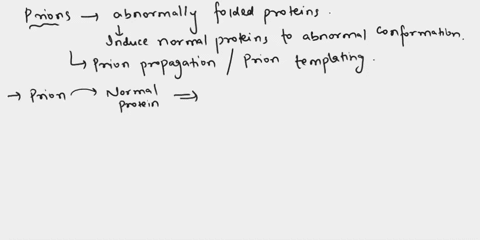 Prions → abnormally folded proteins.
↓
Induce normal proteins to abnormal conformation.
↳ Prion propagation / Prion templating.
→ Prion → Normal protein ⇒